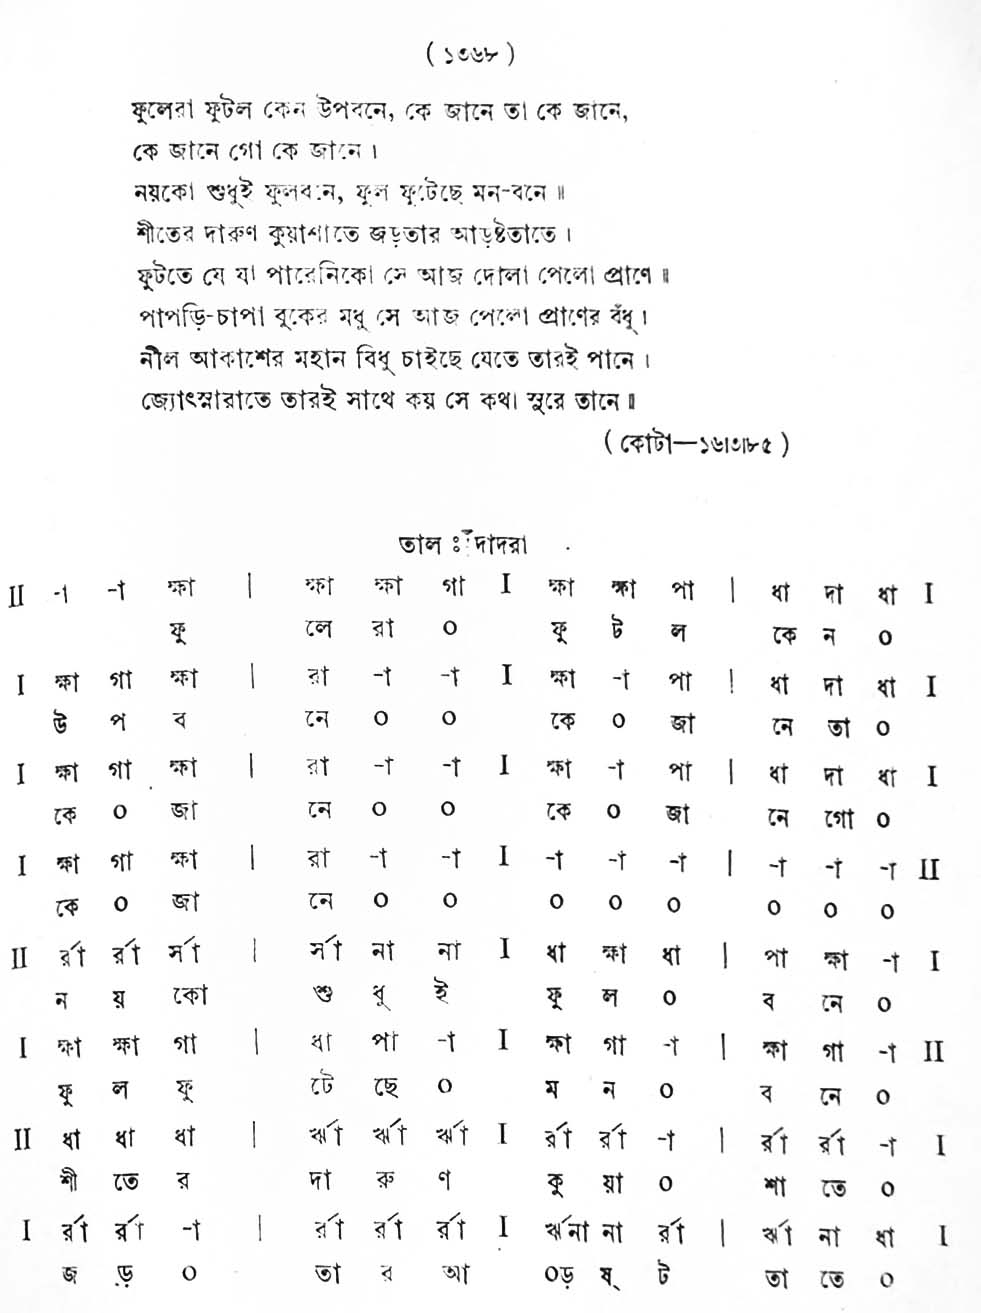 ( ১৩৬৮ )
ফুলেরা ফুটল কেন উপবনে, কে জানে তা কে জানে,
কে জানে গো কে জানে ।
নয়কো শুধুই ফুলবনে, ফুল ফুটেছে মন-বনে ॥
শীতের দারুণ কুয়াশাতে জড়তার আড়ষ্টতাতে ।
ফুটতে যে যা পারেনিকো সে আজ দোলা পেলো প্রাণে ॥
পাপড়ি-চাপা বুকের মধু সে আজ পেলো প্রাণের বঁধু ।
নীল আকাশের মহান বিধু চাইছে যেতে তারই পানে ।
জ্যোৎস্নারাতে তারই সাথে কয় সে কথা সুরে তানে ॥
( কোটা—১৬।৩।৮৫ )
তাল ঃ দাদরা
II -া -া ক্ষা | ক্ষা ক্ষা গা I ক্ষা ক্ষা পা | ধা দা ধা I
ফু লে রা ০ ফু ট ল কে ন ০
I ক্ষা গা ক্ষা | রা -া -া I ক্ষা -া পা | ধা দা ধা I
উ প ব নে ০ ০ কে ০ জা নে তা ০
I ক্ষা গা ক্ষা | রা -া -া I ক্ষা -া পা | ধা দা ধা I
কে ০ জা নে ০ ০ কে ০ জা নে গো ০
I ক্ষা গা ক্ষা | রা -া -া I -া -া -া | -া -া -া II
কে ০ জা নে ০ ০ ০ ০ ০ ০ ০ ০
II র্রা র্রা র্সা | র্সা না না I ধা ক্ষা ধা | পা ক্ষা -া I
ন য় কো শু ধু ই ফু ল ০ ব নে ০
I ক্ষা ক্ষা গা | ধা পা -া I ক্ষা গা -া | ক্ষা গা -া II
ফু ল ফু টে ছে ০ ম ন ০ ব নে ০
II ধা ধা ধা | র্ঋা র্ঋা র্ঋা I র্রা র্রা -া | র্রা র্রা -া I
শী তে র দা রু ণ কু য়া ০ শা তে ০
I র্রা র্রা -া | র্রা র্রা র্রা I র্ঋনা না র্রা | র্ঋা না ধা I
জ ড় ০ তা র আ ০ড় ষ্ ট তা তে ০